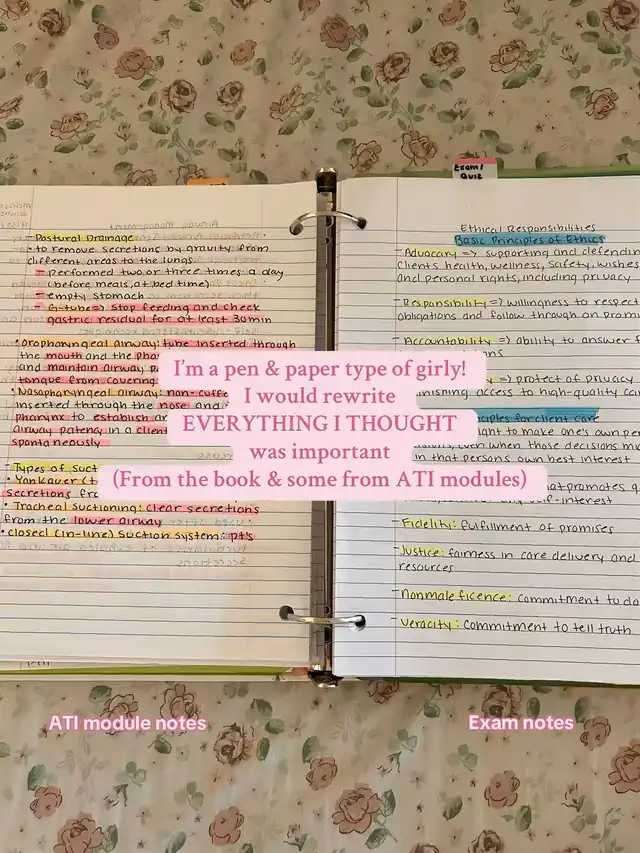 Exam 1
Quiz
Postural Drainage:
to remove secretions by gravity from
different areas to the lungs.
performed two or three times a day
(before meals, at bed time)
empty stomach
G-tube => stop feeding and check
gastric residual for at least 30min
• Oropharyngeal airway: tube inserted through
the mouth and the
and maintain airway
tongue from covering
• Nasopharyngeal airway: non-cuffe
inserted through the nose and
pharynx to establish
airway patency in a client
spontaneously
Types of Suct
• Yankauer
secretions
• Tracheal suctioning: clear secretions
from the lower airway
• Closed (in-line) suction system: pt's
Ethical Responsibilities
Basic Principles of Ethics
- Advocacy => supporting and defendin
clients health, wellness, safety, wishes
and personal rights, including privacy
- Responsibility => willingness to respec
obligations and follow through on promi
- Accountability => ability to answer f
ns
=> protect of privacy
access to high-quality ca
ciples for client care
to make one's own per
even when those decisions mi
in that persons own best interest
that promotes g
self-interest
- Fidelity: fulfillment of promises
- Justice: fairness in care delivery and
resources
- Nonmaleficence: commitment to do
- Veracity: commitment to tell truth
I'm a pen & paper type of girly!
I would rewrite
EVERYTHING I THOUGHT
was important
(From the book & some from ATI modules)
ATI module notes
Exam notes